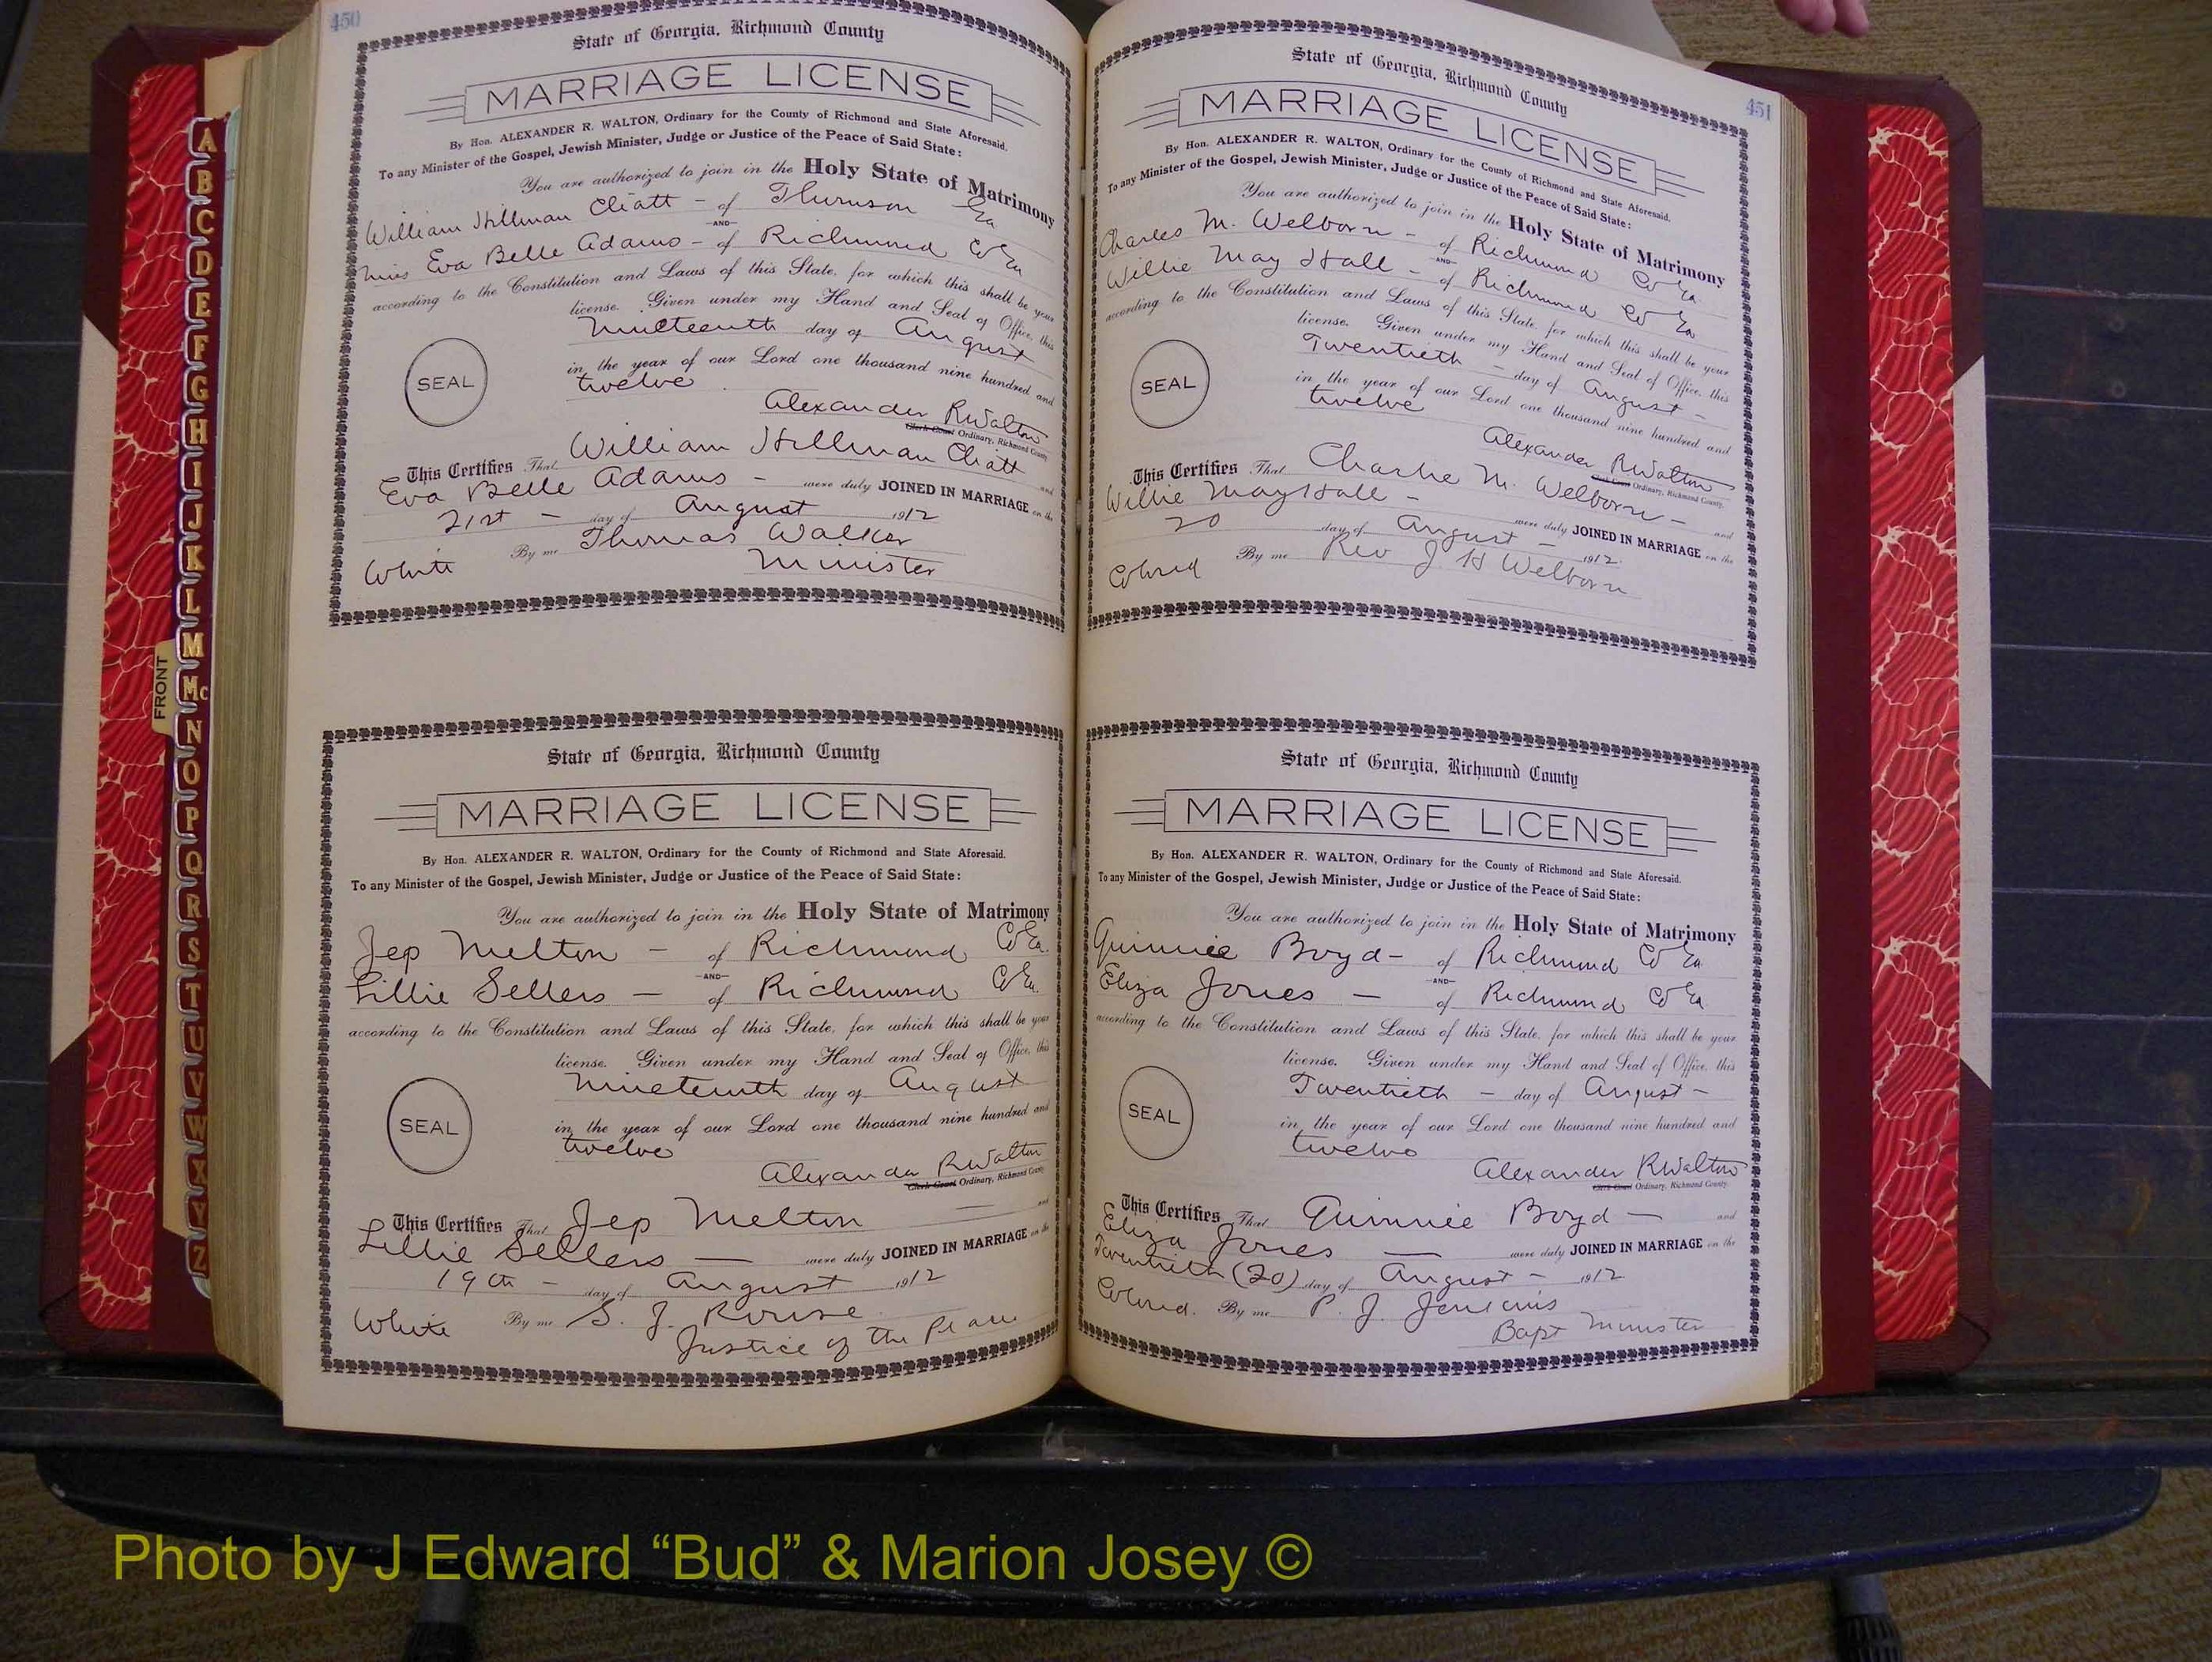 450
State of Georgia, Richmond County
MARRIAGE LICENSE
By Hon. ALEXANDER R. WALTON, Ordinary for the County of Richmond and State Aforesaid.
To any Minister of the Gospel, Jewish Minister, Judge or Justice of the Peace of Said State:
You are authorized to join in the Holy State of Matrimony
William Hillman Cliatt - of Thomson Ga
AND
Miss Eva Belle Adams - of Richmond Co Ga
according to the Constitution and Laws of this State, for which this shall be your
license. Given under my Hand and Seal of Office, this
Nineteenth day of August
in the year of our Lord one thousand nine hundred and
twelve
SEAL
Alexander R Walton
Clerk Court Ordinary, Richmond County
This Certifies That William Hillman Cliatt and
Eva Belle Adams - were duly JOINED IN MARRIAGE on the
21st - day of August 1912
White By me Thomas Walker
Minister
State of Georgia, Richmond County
MARRIAGE LICENSE
By Hon. ALEXANDER R. WALTON, Ordinary for the County of Richmond and State Aforesaid.
To any Minister of the Gospel, Jewish Minister, Judge or Justice of the Peace of Said State:
You are authorized to join in the Holy State of Matrimony
Jep Melton - of Richmond Co Ga.
AND
Lillie Sellers - of Richmond Co Ga.
according to the Constitution and Laws of this State, for which this shall be your
license. Given under my Hand and Seal of Office, this
Nineteenth day of August
in the year of our Lord one thousand nine hundred and
twelve
SEAL
Alexander R Walton
Clerk Court Ordinary, Richmond County
This Certifies That Jep Melton - and
Lillie Sellers - were duly JOINED IN MARRIAGE on the
19th - day of August 1912
White By me S. J. Rouse
Justice of the Peace
451
State of Georgia, Richmond County
MARRIAGE LICENSE
By Hon. ALEXANDER R. WALTON, Ordinary for the County of Richmond and State Aforesaid.
To any Minister of the Gospel, Jewish Minister, Judge or Justice of the Peace of Said State:
You are authorized to join in the Holy State of Matrimony
Charles M. Welborn - of Richmond Co Ga
AND
Willie May Hall - of Richmond Co Ga
according to the Constitution and Laws of this State, for which this shall be your
license. Given under my Hand and Seal of Office, this
Twentieth - day of August -
in the year of our Lord one thousand nine hundred and
twelve
SEAL
Alexander R Walton
Clerk Court Ordinary, Richmond County.
This Certifies That Charlie M. Welborn - and
Willie May Hall - were duly JOINED IN MARRIAGE on the
20 day of August - 1912
Colored By me Rev J H Welborn
State of Georgia, Richmond County
MARRIAGE LICENSE
By Hon. ALEXANDER R. WALTON, Ordinary for the County of Richmond and State Aforesaid.
To any Minister of the Gospel, Jewish Minister, Judge or Justice of the Peace of Said State:
You are authorized to join in the Holy State of Matrimony
Quinnie Boyd - of Richmond Co Ga
AND
Eliza Jones - of Richmond Co Ga
according to the Constitution and Laws of this State, for which this shall be your
license. Given under my Hand and Seal of Office, this
Twentieth - day of August -
in the year of our Lord one thousand nine hundred and
twelve
SEAL
Alexander R Walton
Clerk Court Ordinary, Richmond County.
This Certifies That Quinnie Boyd - and
Eliza Jones - were duly JOINED IN MARRIAGE on the
Twentieth (20) day of August - 1912
Colored. By me P. J. Jenkins
Bapt Minister
FRONT
A
B
C
D
E
F
G
H
I
J
K
L
M
Mc
N
O
P
Q
R
S
T
U
V
W
X
Y
Z
Photo by J Edward “Bud” & Marion Josey ©